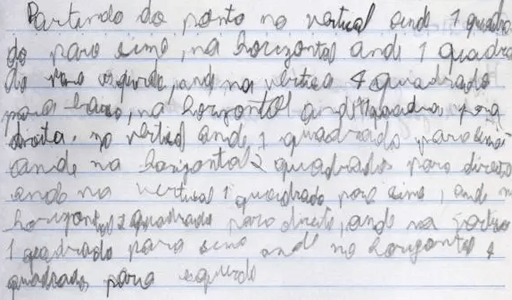 Partindo do ponto na vertical ande 1 quadra
do para sima, na horizontal ande 1 quadra
do para esquerda, ande na vertica 4 quadrado
para baixo, na horizontal ande quadrados para
direita. na vertical ande 1 quadrado para sima
ande na horizontal 2 quadrados para direito
ande na vertical 1 quadrado para sima, ande n
horizontal 2 quadrado para direito, ande na vertica
1 quadrado para sima ande na horizontal 4
quadrados para esquerdo